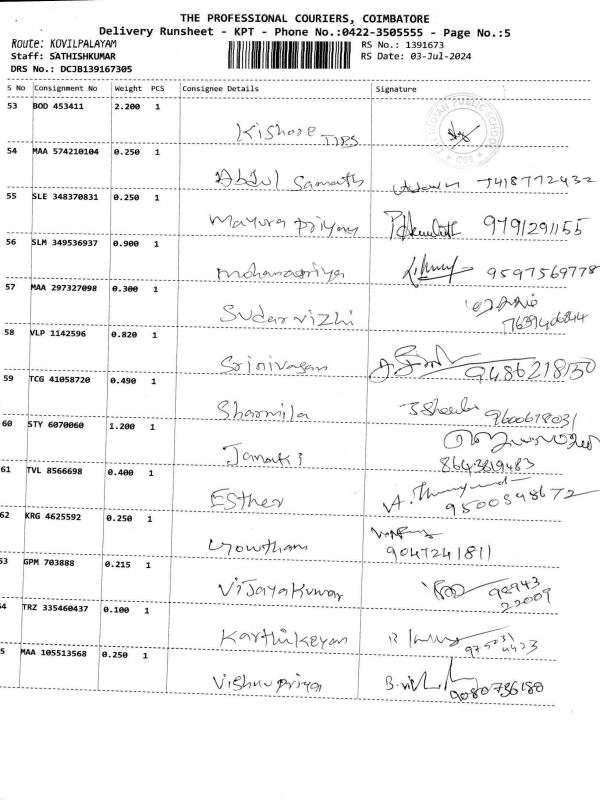 THE PROFESSIONAL COURIERS, COIMBATORE
Delivery Runsheet - KPT - Phone No.:0422-3505555 - Page No.:5
Route: KOVILPALAYAM
RS No.: 1391673
Staff: SATHISHKUMAR
RS Date: 03-Jul-2024
DRS No.: DCJB139167305
S No Consignment No Weight PCS Consignee Details Signature
53 BOD 453411 2.200 1
Kishore TIPS
INDIAN PUBLIC SCHOOL CBE
54 MAA 574210104 0.250 1
Abdul Samath 7418772432
55 SLE 348370831 0.250 1
Mayura Priyan 9791291155
56 SLM 349536937 0.900 1
Mohanapriya 9597569778
57 MAA 297327098 0.300 1
Sudarvizhi
58 VLP 1142596 0.820 1
Srinivasan 9486218130
59 TCG 41058720 0.490 1
Sharmila 9600678031
60 STY 6070060 1.200 1
Janaki 8643819483
61 TVL 8566698 0.400 1
Esther 9500398672
62 KRG 4625592 0.250 1
Gowtham 9047241811
53 GPM 703888 0.215 1
Vijayakumar 90943
22009
54 TRZ 335460437 0.100 1
Karthikeyan
5 MAA 105513568 0.250 1
Vishnu Priya 9080736180